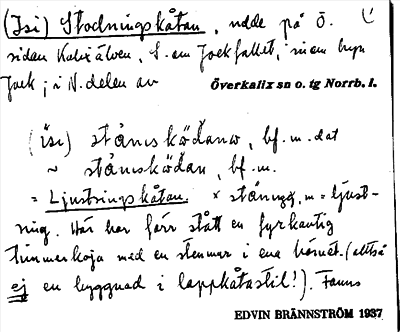 (Isi) Stodningskåtan, udde på Ö.
sidan Kalixälven, S. om Jockfallet, inom byn
Jock; i N. delen av Överkalix sn o. tg Norrb. l.
(isi) ståuskådanω, bf. m. dat
~ ståuskådan, bf. m.
= Ljustringskåtan. × = ljust-
ring. Här har förr stått en fyrkantig
timmerkoja med en stenmur i ena hörnet. (alltså
ej en byggnad i lappkåtastil!). Fanns
EDVIN BRÄNNSTRÖM 1937